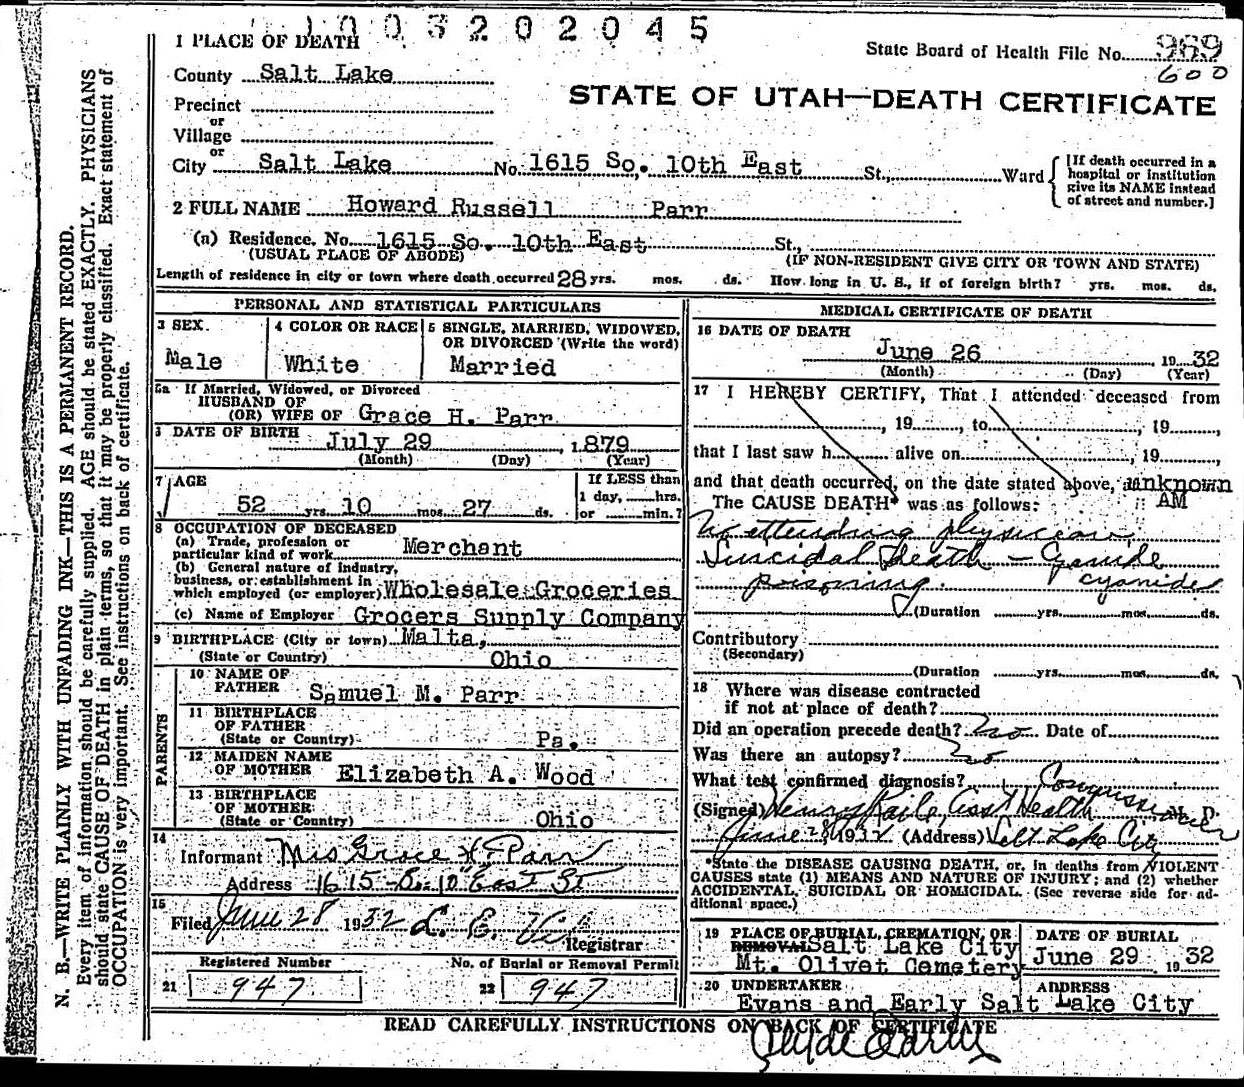 1003202045
1 PLACE OF DEATH
State Board of Health File No. 969
600
County Salt Lake
STATE OF UTAH—DEATH CERTIFICATE
Precinct
or
Village
or
City Salt Lake No. 1615 So. 10th East St., Ward
[If death occurred in a
hospital or institution
give its NAME instead
of street and number.]
2 FULL NAME Howard Russell Parr
(a) Residence. No. 1615 So. 10th East St.,
(USUAL PLACE OF ABODE) (IF NON-RESIDENT GIVE CITY OR TOWN AND STATE)
Length of residence in city or town where death occurred 28 yrs. mos. ds. How long in U. S., if of foreign birth? yrs. mos. ds.
PERSONAL AND STATISTICAL PARTICULARS
3 SEX.
Male
4 COLOR OR RACE
White
5 SINGLE, MARRIED, WIDOWED,
OR DIVORCED (Write the word)
Married
5a If Married, Widowed, or Divorced
HUSBAND OF
(OR) WIFE OF Grace H. Parr
DATE OF BIRTH July 29, 1879
(Month) (Day) (Year)
7 AGE
52 yrs. 10 mos. 27 ds.
If LESS than
1 day, hrs.
or min.?
8 OCCUPATION OF DECEASED
(a) Trade, profession or
particular kind of work Merchant
(b) General nature of industry,
business, or establishment in
which employed (or employer) Wholesale Groceries
(c) Name of Employer Grocers Supply Company
9 BIRTHPLACE (City or town) Malta,
(State or Country) Ohio
PARENTS
10 NAME OF
FATHER Samuel M. Parr
11 BIRTHPLACE
OF FATHER
(State or Country) Pa.
12 MAIDEN NAME
OF MOTHER Elizabeth A. Wood
13 BIRTHPLACE
OF MOTHER
(State or Country) Ohio
14
Informant Mrs Grace H. Parr
Address 1615 So. 10" East St
15
Filed June 28 1932 L. E.
Registrar
Registered Number
21 947
No. of Burial or Removal Permit
22 947
MEDICAL CERTIFICATE OF DEATH
16 DATE OF DEATH
June 26 1932
(Month) (Day) (Year)
17 I HEREBY CERTIFY, That I attended deceased from
, 19 , to , 19 ,
that I last saw h alive on , 19 ,
and that death occurred, on the date stated above, at unknown
AM
The CAUSE DEATH* was as follows:
No attending physician
Suicidal Death — Cyanide
poisoning. cyanide
(Duration yrs. mos. ds.
Contributory
(Secondary)
(Duration yrs. mos. ds.
18 Where was disease contracted
if not at place of death?
Did an operation precede death? No Date of
Was there an autopsy? No
What test confirmed diagnosis?
Commissioner
(Signed) Henry Raile, Asst Health M. D.
June 28, 1932 (Address) Salt Lake City
*State the DISEASE CAUSING DEATH, or, in deaths from VIOLENT
CAUSES state (1) MEANS AND NATURE OF INJURY; and (2) whether
ACCIDENTAL, SUICIDAL OR HOMICIDAL. (See reverse side for ad-
ditional space.)
19 PLACE OF BURIAL, CREMATION, OR
REMOVAL Salt Lake City
Mt. Olivet Cemetery
DATE OF BURIAL
June 29, 1932
20 UNDERTAKER ADDRESS
Evans and Early Salt Lake City
READ CAREFULLY INSTRUCTIONS ON BACK OF CERTIFICATE
Clyde Early
N. B.—WRITE PLAINLY WITH UNFADING INK—THIS IS A PERMANENT RECORD.
Every item of information should be carefully supplied. AGE should be stated EXACTLY. PHYSICIANS
should state CAUSE OF DEATH in plain terms, so that it may be properly classified. Exact statement of
OCCUPATION is very important. See instructions on back of certificate.